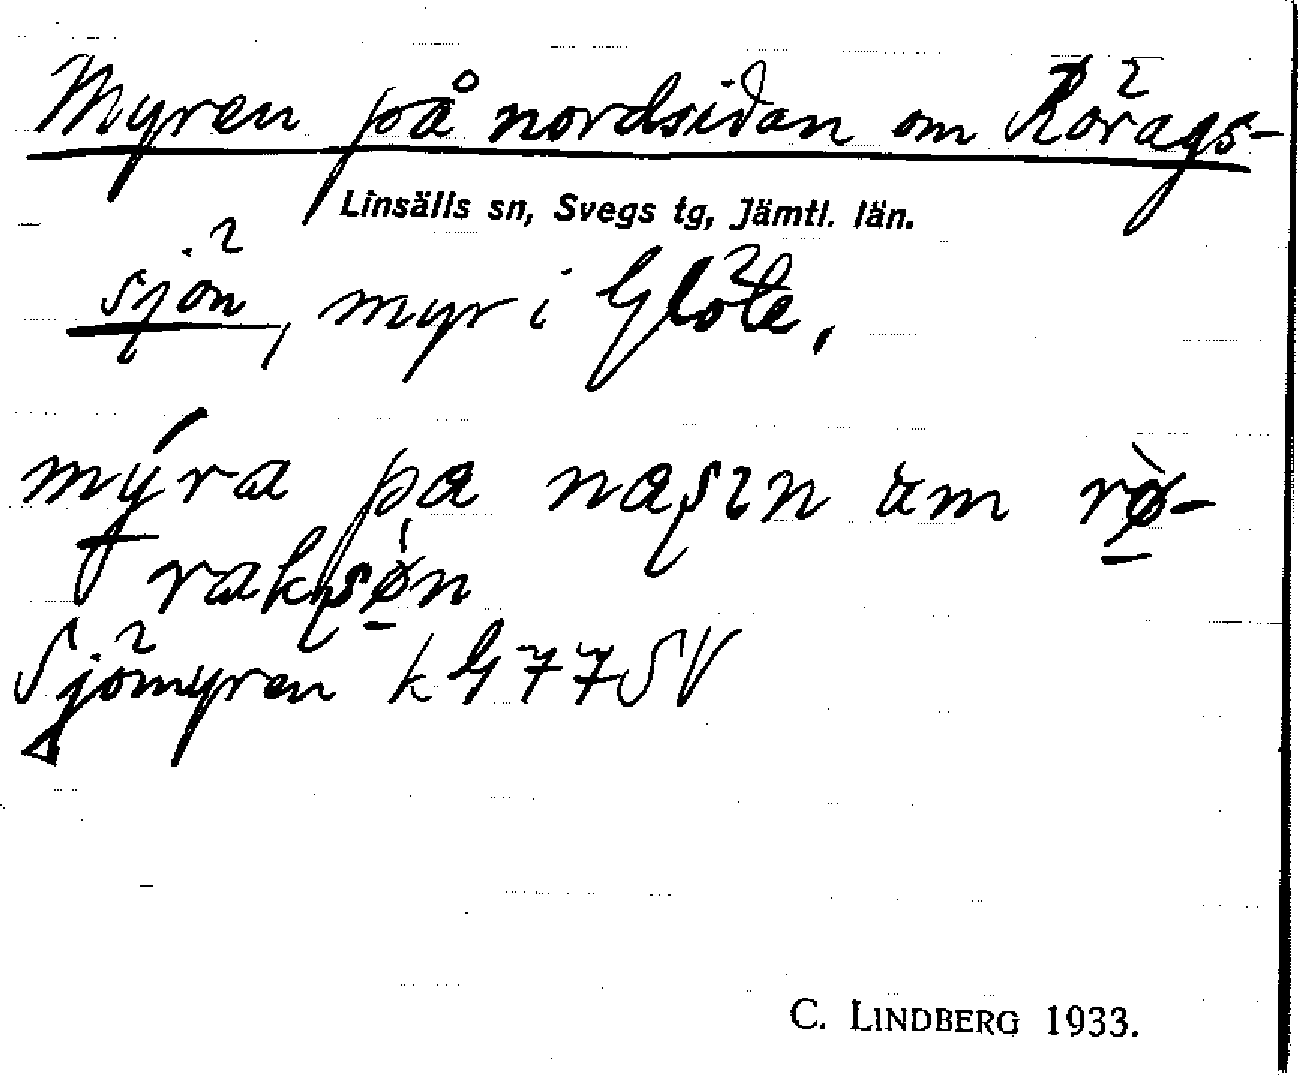 Myren på nordsidan om Rörags-
Linsälls sn, Svegs tg, Jämtl. län.
sjön, myr i Glöte.
mýra pa nasın um rø̀-
raksøn
Sjömyren k G 77 SV
C. LINDBERG 1933.